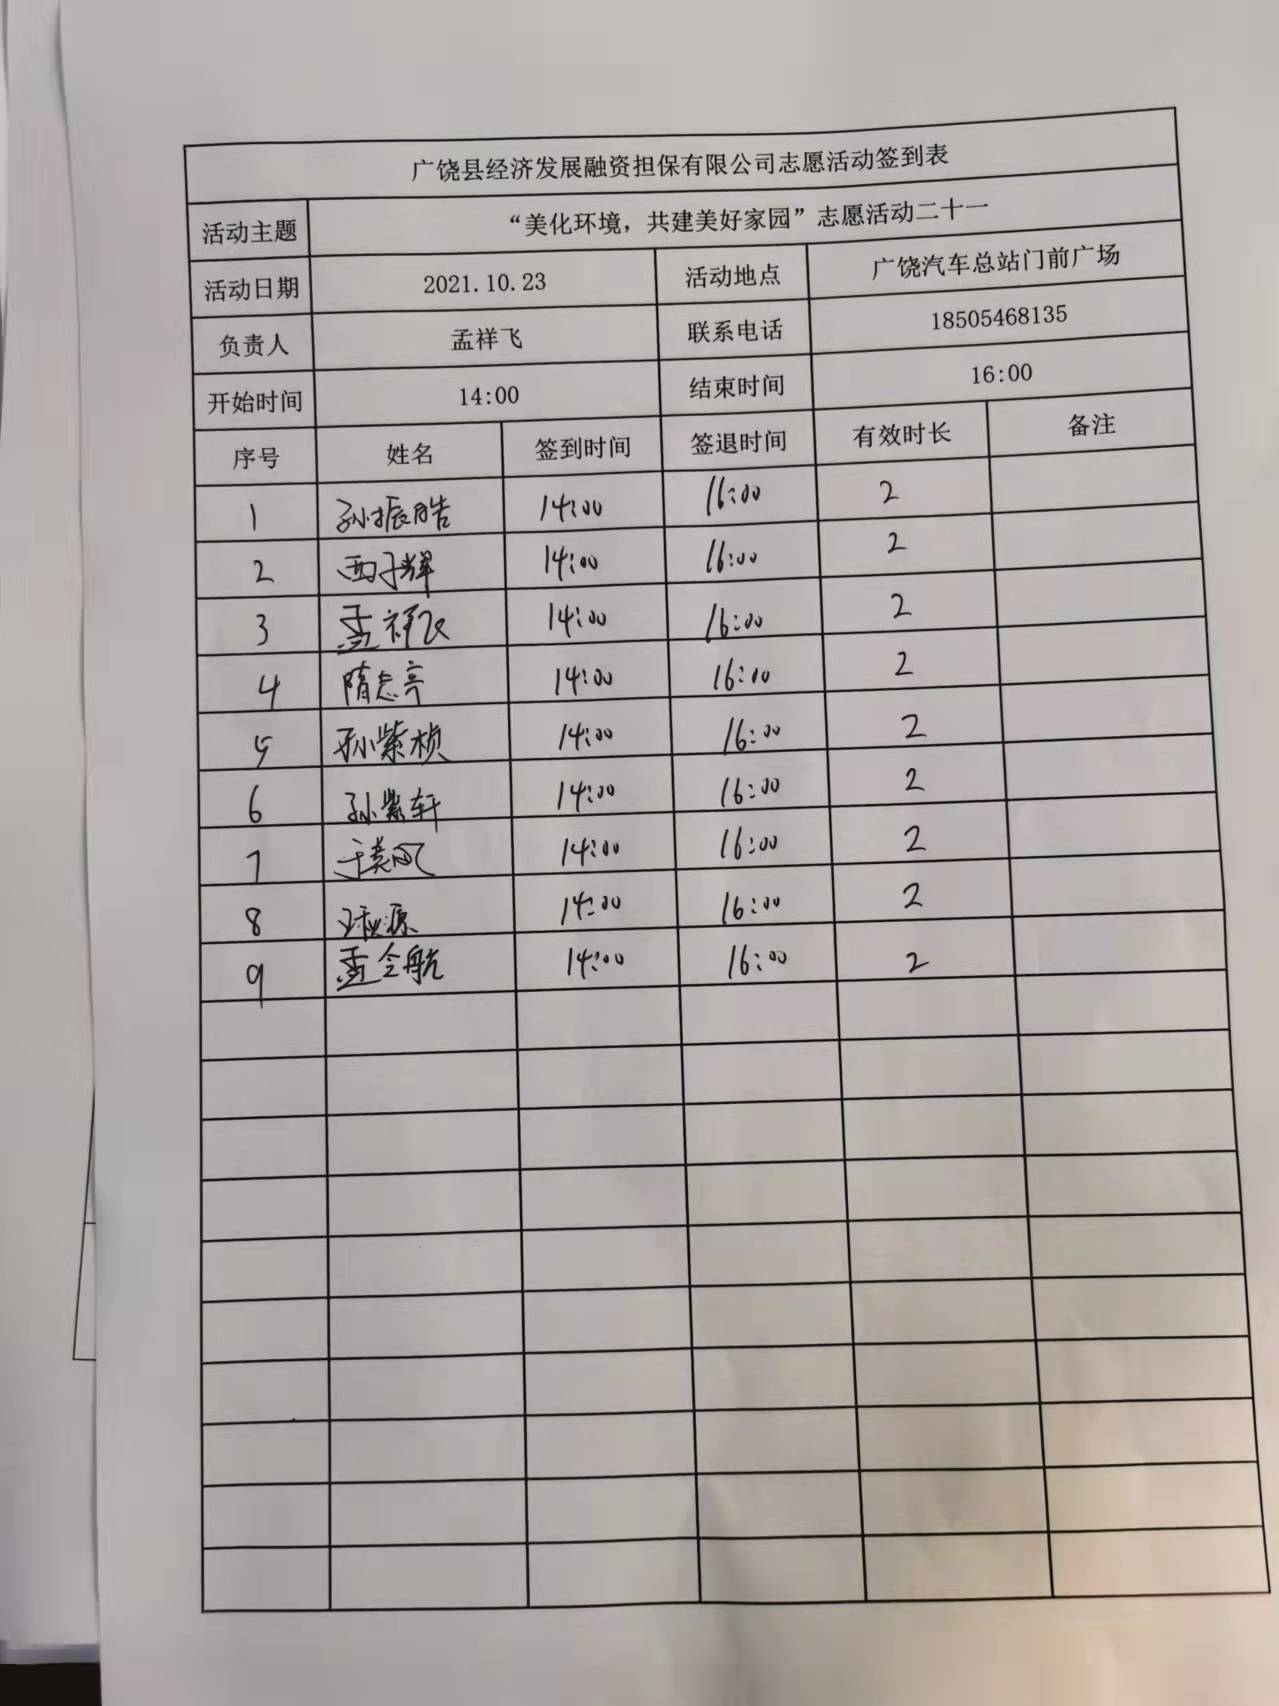 广饶县经济发展融资担保有限公司志愿活动签到表
活动主题 “美化环境，共建美好家园”志愿活动二十一
活动日期 2021.10.23 活动地点 广饶汽车总站门前广场
负责人 孟祥飞 联系电话 18505468135
开始时间 14:00 结束时间 16:00
序号 姓名 签到时间 签退时间 有效时长 备注
1 孙振皓 14:00 16:00 2
2 西子辉 14:00 16:00 2
3 孟祥飞 14:00 16:00 2
4 隋志亭 14:00 16:00 2
5 孙紫桢 14:00 16:00 2
6 孙紫轩 14:00 16:00 2
7 14:00 16:00 2
8 14:00 16:00 2
9 孟令航 14:00 16:00 2